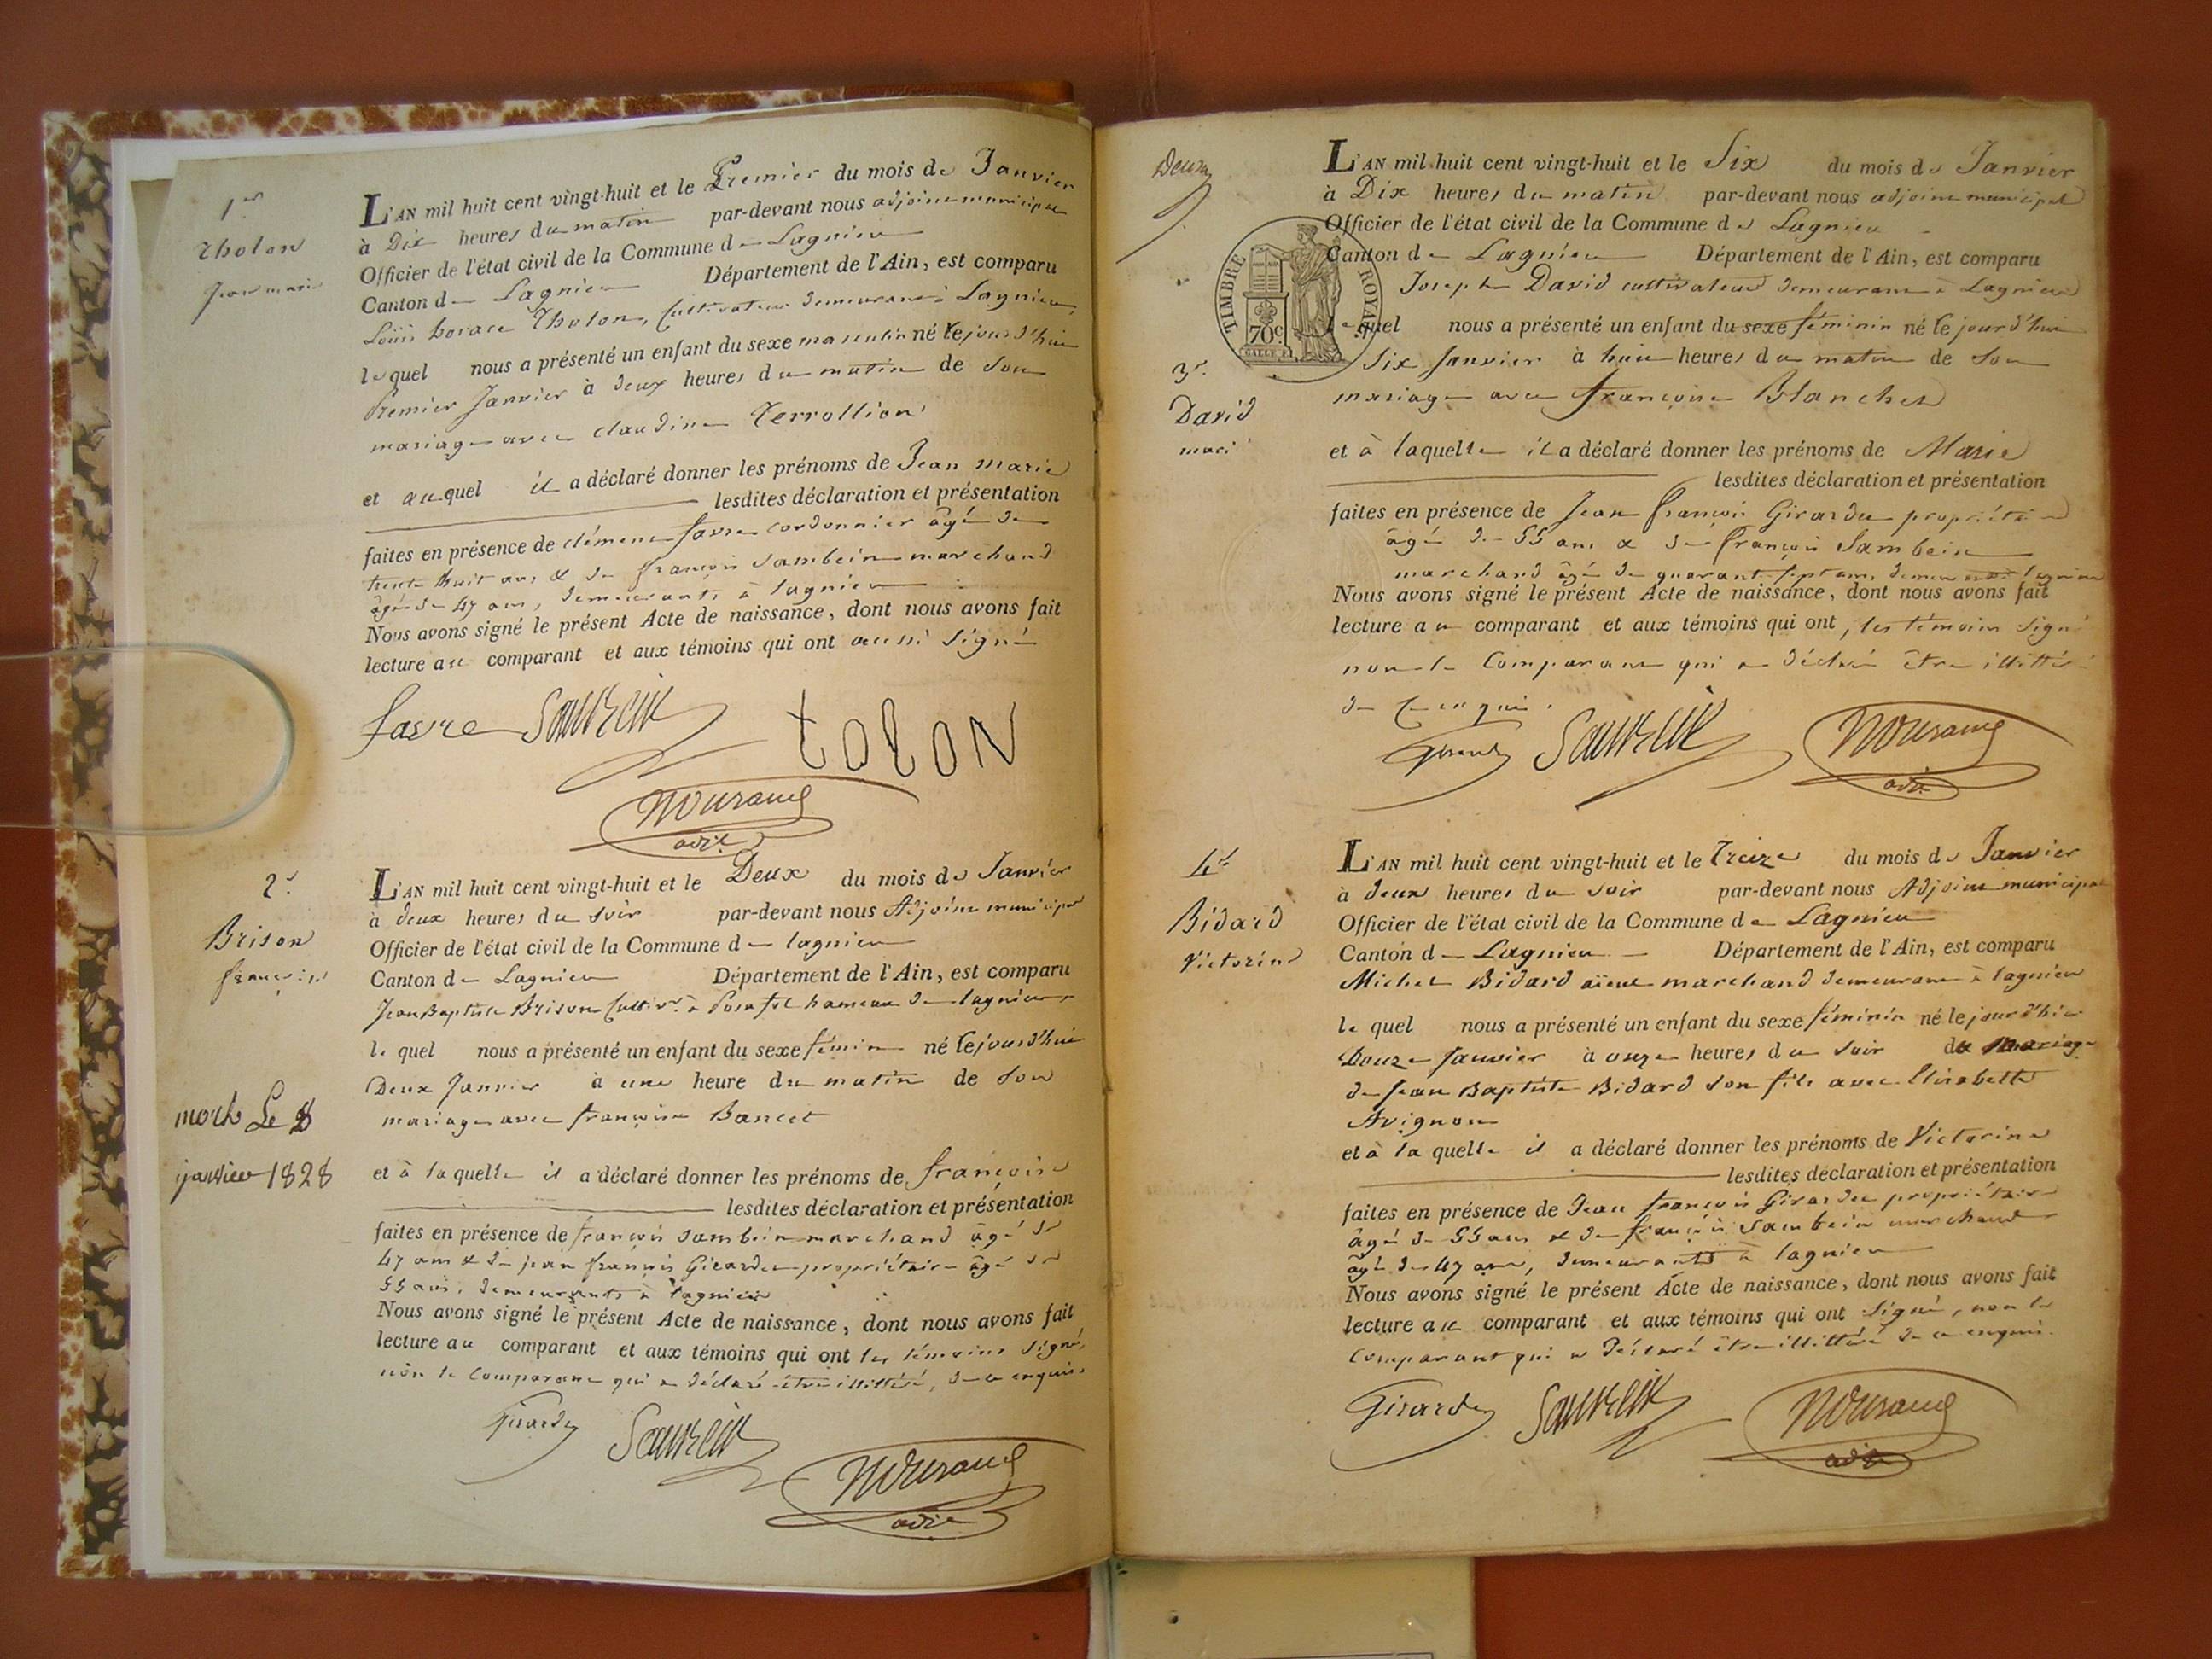 1er
Tholon
Jean marie
L'AN mil huit cent vingt-huit et le Premier du mois de Janvier
à Dix heures du matin par-devant nous adjoint municipal
Officier de l'état civil de la Commune de Lagnieu
Canton de Lagnieu Département de l'Ain, est comparu
Louis horace Tholon, Cultivateur demeurant à Lagnieu,
lequel nous a présenté un enfant du sexe masculin né le jourd'hui
Premier Janvier à deux heures du matin de son
mariage avec claudine Terrollion
et auquel il a déclaré donner les prénoms de Jean marie
lesdites déclaration et présentation
faites en présence de clément favre cordonnier âgé de
trente huit ans & de françois Sambein marchand
âgé de 47 ans, demeurants à lagnieu
Nous avons signé le présent Acte de naissance, dont nous avons fait
lecture au comparant et aux témoins qui ont aussi signé
favre Sambein tolon
adjt
2e
Brison
françoise
morte Le 8
janvier 1828
L'AN mil huit cent vingt-huit et le Deux du mois de Janvier
à deux heures du soir par-devant nous Adjoint municipal
Officier de l'état civil de la Commune de lagnieu
Canton de Lagnieu Département de l'Ain, est comparu
Jean Baptiste Brison Cultivr à Posafol hameau de lagnieu
lequel nous a présenté un enfant du sexe féminin né le jourd'hui
Deux Janvier à une heure du matin de son
mariage avec françoise Bancet
et à laquelle il a déclaré donner les prénoms de françoise
lesdites déclaration et présentation
faites en présence de françois Sambein marchand âgé de
47 ans & de jean françois Girardet propriétaire âgé de
55 ans, demeurants à lagnieu
Nous avons signé le présent Acte de naissance, dont nous avons fait
lecture au comparant et aux témoins qui ont les témoins signé,
non le Comparant qui a déclaré être illittéré, de ce enquis
Girardet Sambein
adjt
TIMBRE ROYAL
70c
3e
David
marie
L'AN mil huit cent vingt-huit et le Six du mois de Janvier
à Dix heures du matin par-devant nous adjoint municipal
Officier de l'état civil de la Commune de Lagnieu
Canton de Lagnieu Département de l'Ain, est comparu
Joseph David cultivateur demeurant à Lagnieu
lequel nous a présenté un enfant du sexe féminin né le jourd'hui
Six Janvier à huit heures du matin de son
mariage avec françoise Blanchet
et à laquelle il a déclaré donner les prénoms de Marie
lesdites déclaration et présentation
faites en présence de Jean françois Girardet propriétaire
âgé de 55 ans & de françois Sambein
marchand âgé de quarant sept ans, demeurants à lagnieu
Nous avons signé le présent Acte de naissance, dont nous avons fait
lecture au comparant et aux témoins qui ont, les témoins signé
non le Comparant qui a déclaré être illittéré
de ce enquis.
Girardet Sambein
adjt
4e
Bidard
Victorine
L'AN mil huit cent vingt-huit et le Treize du mois de Janvier
à deux heures du soir par-devant nous Adjoint municipal
Officier de l'état civil de la Commune de Lagnieu
Canton de Lagnieu Département de l'Ain, est comparu
Michel Bidard aïeul marchand demeurant à lagnieu
lequel nous a présenté un enfant du sexe féminin né le jour d'hier
Douze Janvier à onze heures du soir du mariage
de Jean Baptiste Bidard son fils avec Elisabette
Avignon
et à laquelle il a déclaré donner les prénoms de Victorine
lesdites déclaration et présentation
faites en présence de Jean françois Girardet propriétaire
âgé de 55 ans & de françois Sambein marchand
âgé de 47 ans, demeurants à lagnieu
Nous avons signé le présent Acte de naissance, dont nous avons fait
lecture au comparant et aux témoins qui ont signé, non le
Comparant qui a déclaré être illittéré de ce enquis.
Girardet Sambein
adjt